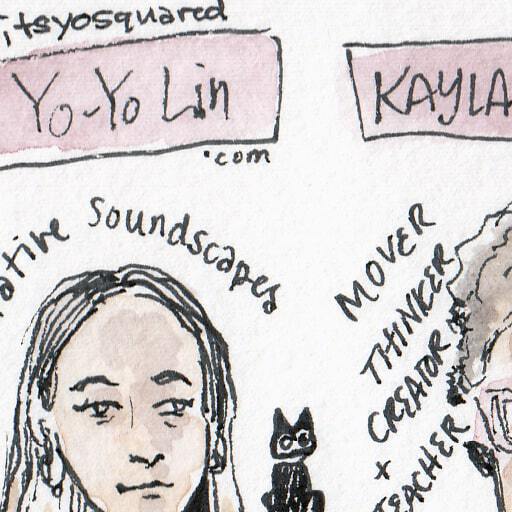 itsyosquared
Yo-Yo Lin
.com
Soundscapes
KAYLA
MOVER
THINKER
CREATOR
+
TEACHER